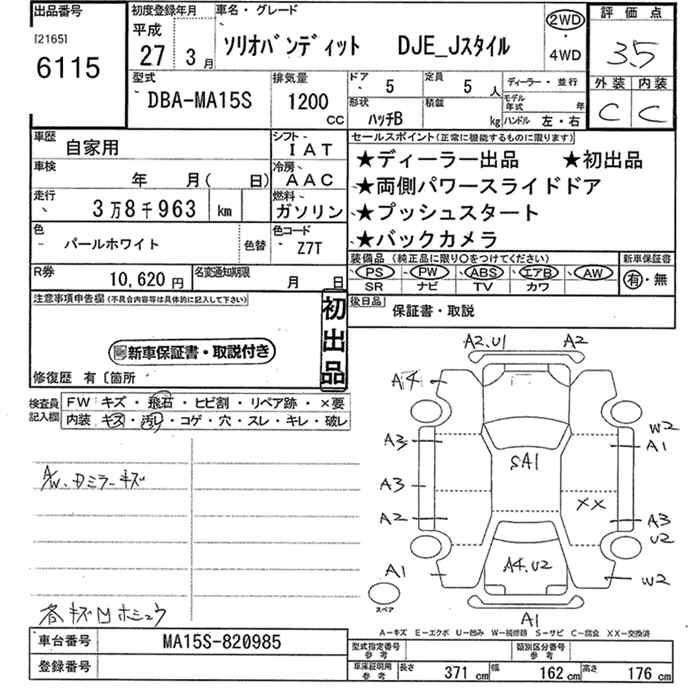 出品番号 初度登録年月 車名・グレード 2WD 評価点
[2165] 平成
6115 27年3月 ソリオバンディット DJE_Jスタイル ・ 4WD 3.5
型式 排気量 ドア 5 定員 5人 ディーラー・並行 外装 内装
DBA-MA15S 1200cc 形状 ハッチB 積載 kg モデル年式 年 ハンドル 左・右 C C
車歴 自家用 シフト IAT セールスポイント(正常に機能するものに限ります)
車検 年 月( 日) 冷房 AAC ★ディーラー出品 ★初出品
走行 3万8千963 km 燃料 ガソリン ★両側パワースライドドア
★プッシュスタート
色 パールホワイト 色替 色コード Z7T ★バックカメラ
装備品(純正品に限り○をつけてください) 新車保証書
R券 10,620円 名変通知期限 月 日 PS PW ABS エアB AW 有・無
SR ナビ TV カワ
注意事項申告欄(不具合内容等は具体的に記入して下さい) 初出品 後日品 保証書・取説
新車保証書・取説付き
修復歴 有〔箇所
検査員記入欄 FW キズ・飛石・ヒビ割・リペア跡・×要
内装 キズ・汚レ・コゲ・穴・スレ・キレ・破レ
A2,U1 A2
A4
W2
A3 A1
SA1
A/W、ドミラーキズ A3
XX
A2 A3
U2
A4,U2
A1 W2
スペア
A1
各キズ凹ホシュウ
A―キズ E―エクボ U―凹み W―補修跡 S―サビ C―腐食 XX―交換済
車台番号 MA15S-820985 型式指定番号 参考 類別区分番号 参考
登録番号 車庫証明用 参考 長さ 371cm 幅 162cm 高さ 176cm